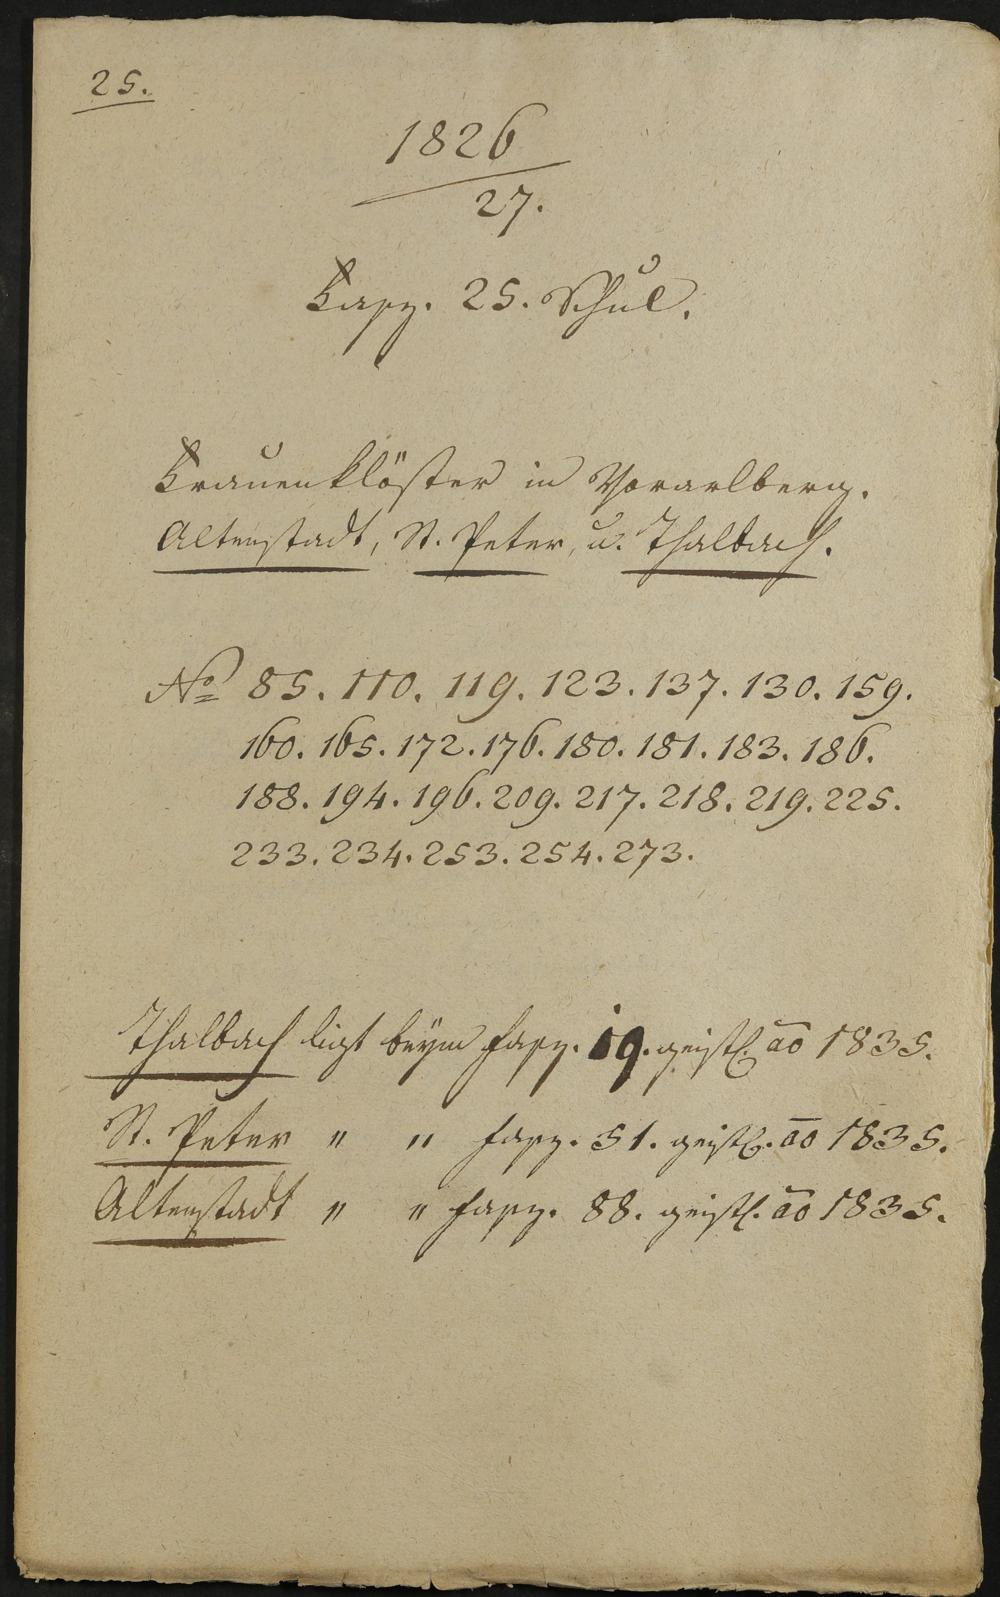 25.
1826
27.
Fasz. 25. Schul.
Frauenklöster in Vorarlberg.
Altenstadt, St. Peter, u. Thalbach.
No 85. 110. 119. 123. 137. 130. 159.
160. 165. 172. 176. 180. 181. 183. 186.
188. 194. 196. 209. 217. 218. 219. 225.
233. 234. 253. 254. 273.
Thalbach ligt beÿm Fasz. 19. geistl. ao 1835.
St. Peter " " Fasz. 51. geistl. ao 1835.
Altenstadt " " Fasz. 88. geistl. ao 1835.